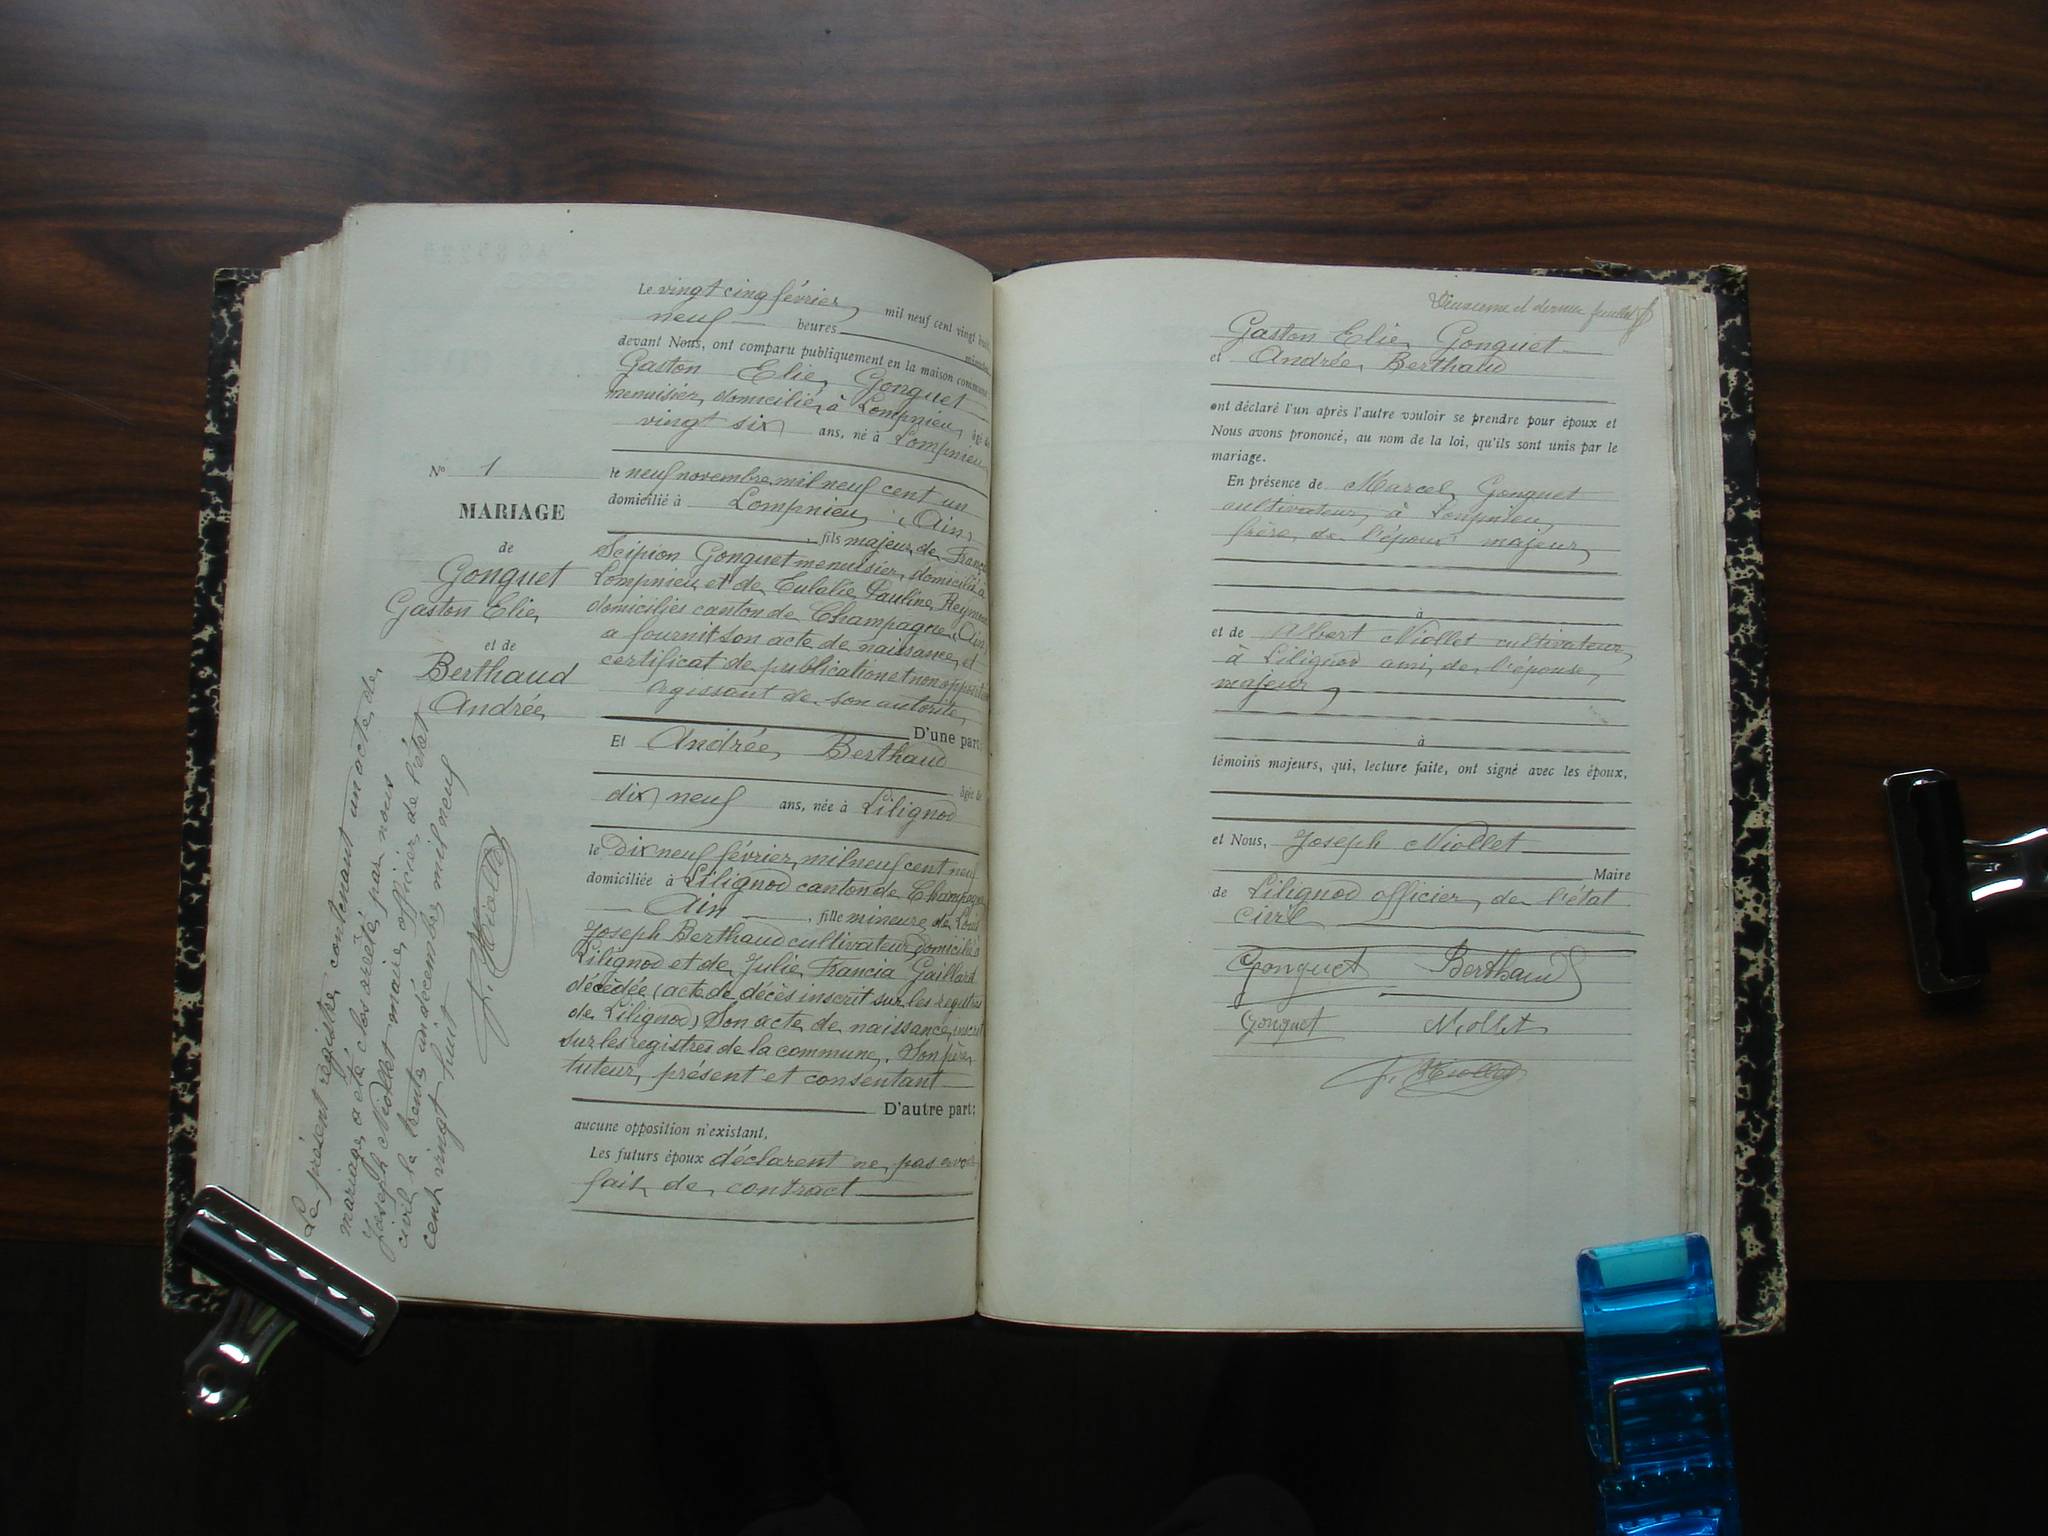 Le vingt cinq février mil neuf cent vingt huit,
neuf heures minutes,
devant Nous, ont comparu publiquement en la maison commune
Gaston Elie Gonguet
menuisier domicilié à Lompnieu âgé de
vingt six ans, né à Lompnieu
le neuf novembre mil neuf cent un
domicilié à Lompnieu (Ain)
, fils majeur de
Scipion Gonguet menuisier, domicilié à
Lompnieu et de Eulalie Pauline
domiciliés canton de Champagne (Ain)
a fournit son acte de naissance, et
certificat de publication et non opposition
agissant de son autorité,
D'une part;
Et Andrée Berthaud
âgée de
dix neuf ans, née à Lilignod
le Dix neuf février, mil neuf cent neuf
domiciliée à Lilignod canton de Champagne
Ain , fille mineure de Louis
Joseph Berthaud cultivateur domicilié à
Lilignod et de Julie Francia Gaillard
décédée (acte de décès inscrit sur les registres
de Lilignod) Son acte de naissance inscrit
sur les registres de la commune. Son père
tuteur, présent et consentant
D'autre part;
aucune opposition n'existant,
Les futurs époux déclarent ne pas avoir
fait de contract
No 1
MARIAGE
de
Gonguet
Gaston Elie
et de
Berthaud
Andrée
Le présent registre contenant un acte de
mariage a été clos arrêté par nous
Joseph Niollet maire officier de l'état
civil le trente un décembre mil neuf
cent vingt huit
J. Niollet
Deuxième et dernier feuillet
Gaston Elie Gonguet
et Andrée Berthaud
ont déclaré l'un après l'autre vouloir se prendre pour époux et
Nous avons prononcé, au nom de la loi, qu'ils sont unis par le
mariage.
En présence de Marcel Gonguet
cultivateur à Lompnieu
frère de l'époux majeur
à
et de Albert Niollet cultivateur
à Lilignod ami de l'épouse,
majeur
à
témoins majeurs, qui, lecture faite, ont signé avec les époux,
et Nous, Joseph Niollet
Maire
de Lilignod officier de l'état
civil
Gonguet Berthaud
Gonguet Niollet
J. Niollet